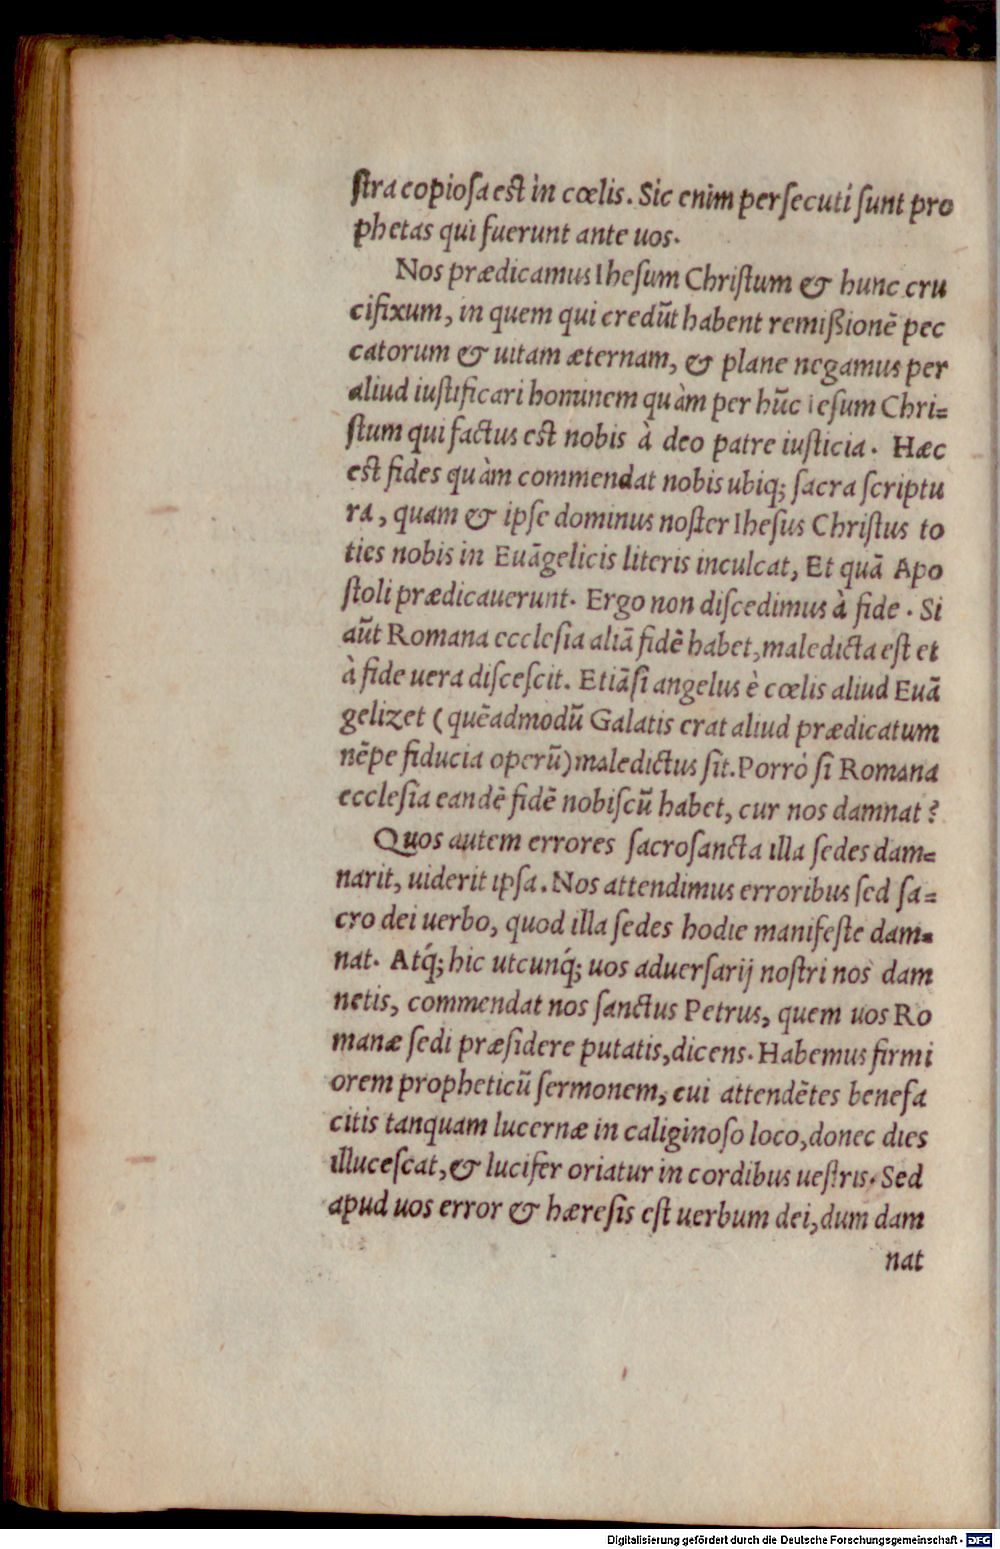 stra copiosa est in cœlis. Sic enim persecuti sunt pro
phetas qui fuerunt ante uos.
Nos prædicamus Ihesum Christum & hunc cru
cifixum, in quem qui credūt habent remißionē pec
catorum & uitam æternam, & plane negamus per
aliud iustificari hominem quàm per hūc iesum Chri=
stum qui factus est nobis à deo patre iusticia. Hæc
est fides quàm commendat nobis ubiq; sacra scriptu
ra, quam & ipse dominus noster Ihesus Christus to
ties nobis in Euāgelicis literis inculcat, Et quā Apo
stoli prædicauerunt. Ergo non discedimus à fide. Si
aūt Romana ecclesia aliā fidē habet, maledicta est et
à fide uera discescit. Etiāsi angelus è cœlis aliud Euā
gelizet (quēadmodū Galatis erat aliud prædicatum
nēpe fiducia operū) maledictus sit. Porrò si Romana
ecclesia eandē fidē nobiscū habet, cur nos damnat?
Quos autem errores sacrosancta illa sedes dam=
narit, uiderit ipsa. Nos attendimus erroribus sed sa=
cro dei uerbo, quod illa sedes hodie manifeste dam=
nat. Atq́; hic utcunq́; uos aduersarij nostri nos dam
netis, commendat nos sanctus Petrus, quem uos Ro
manæ sedi præsidere putatis, dicens. Habemus firmi
orem propheticū sermonem, cui attendētes benefa
citis tanquam lucernæ in caliginoso loco, donec dies
illucescat, & lucifer oriatur in cordibus uestris. Sed
apud uos error & hæresis est uerbum dei, dum dam
nat
Digitalisierung gefördert durch die Deutsche Forschungsgemeinschaft - DFG